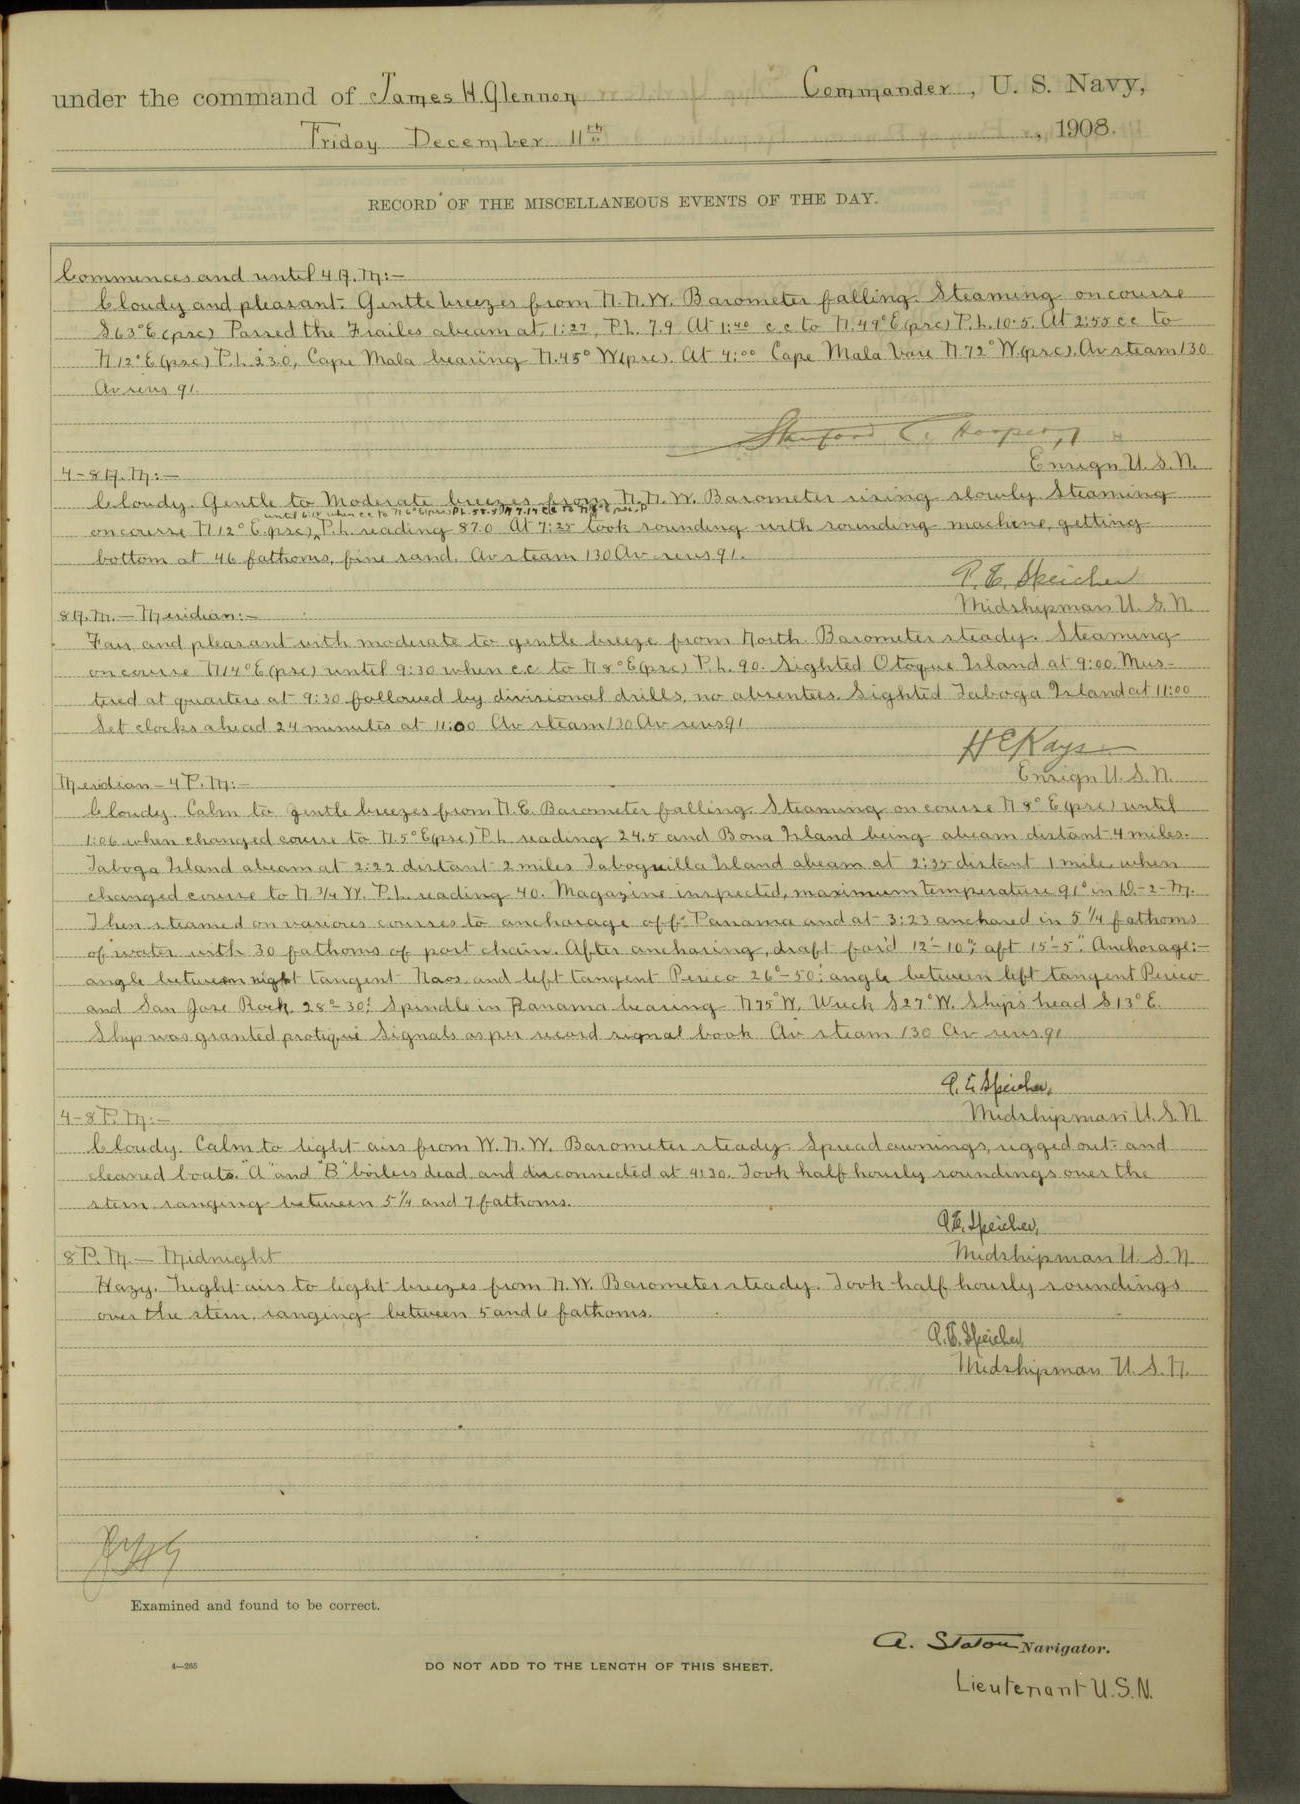 under the command of James H. Glennon Commander, U. S. Navy,
Friday December 11th, 1908.
RECORD OF THE MISCELLANEOUS EVENTS OF THE DAY.
Commences and until 4 A.M:-
Cloudy and pleasant. Gentle breezes from N.N.W. Barometer falling. Steaming on course
S63°E (psc) Passed the Frailes abeam at 1:27, P.L. 7.9 At 1:40 c c to N.49°E(psc) P.L. 10.5. At 2:55 c c to
N12°E(psc) P.L. 23.0, Cape Mala bearing N.45°W(psc). At 4:00 Cape Mala bore N.72°W(psc). Av steam 130
Av revs 91.
Stanford C. Hooper,
Ensign U.S.N.
4-8 A.M:-
Cloudy. Gentle to Moderate breezes from N.N.W. Barometer rising slowly. Steaming
until 6:15 when c c to N 6°E(psc) P.L. 55.5
on course N12°E(psc), P.L. reading 87.0 At 7:25 took sounding with sounding machine, getting
bottom at 46 fathoms, fine sand. Av steam 130 Av revs 91.
P. E. Speicher
Midshipman U.S.N.
8 A.M.-Meridian:-
Fair and pleasant with moderate to gentle breeze from North. Barometer steady. Steaming
on course N14°E(psc) until 9:30 when c.c. to N8°E(psc) P.L. 90. Sighted Otoque Island at 9:00. Mus-
tered at quarters at 9:30 followed by divisional drills, no absentees. Sighted Taboga Island at 11:00
Set clocks ahead 24 minutes at 11:00 Av steam 130 Av revs 91
H E Kays
Ensign U.S.N.
Meridian-4 P.M:-
Cloudy. Calm to gentle breezes from N.E. Barometer falling. Steaming on course N.8°E(psc) until
1:06 when changed course to N.5°E(psc) P.L reading 24.5 and Bona Island being abeam distant 4 miles.
Taboga Island abeam at 2:22 distant 2 miles Taboguilla Island abeam at 2:35 distant 1 mile when
changed course to N.3/4 W. P.L. reading 40. Magazine inspected, maximum temperature 91° in D-2-M.
Then steamed on various courses to anchorage off Panama and at 3:23 anchored in 5 1/4 fathoms
of water with 30 fathoms of port chain. After anchoring, draft for'd 12'-10"; aft 15'-5". Anchorage:-
angle between right tangent Naos and left tangent Perico 26°-50'; angle between left tangent Perico
and San Jose Rock 28°-30'; Spindle in Panama bearing N75°W, Wreck S27°W. Ship's head S13°E.
Ship was granted pratique Signals as per record signal book Av steam 130 Av revs. 91
P. E. Speicher,
Midshipman U.S.N.
4-8 P.M:-
Cloudy. Calm to light airs from W.N.W. Barometer steady. Spread awnings, rigged out and
cleaned boats. "A" and "B" boilers dead and disconnected at 4:30. Took half hourly soundings over the
stern, ranging between 5 1/4 and 7 fathoms.
P.E. Speicher,
Midshipman U.S.N.
8 P.M.-Midnight
Hazy. Light airs to light breezes from N.W. Barometer steady. Took half hourly soundings
over the stern, ranging between 5 and 6 fathoms.
P.E. Speicher,
Midshipman U.S.N.
Examined and found to be correct.
A. Staton Navigator.
4-265 DO NOT ADD TO THE LENGTH OF THIS SHEET.
Lieutenant U.S.N.